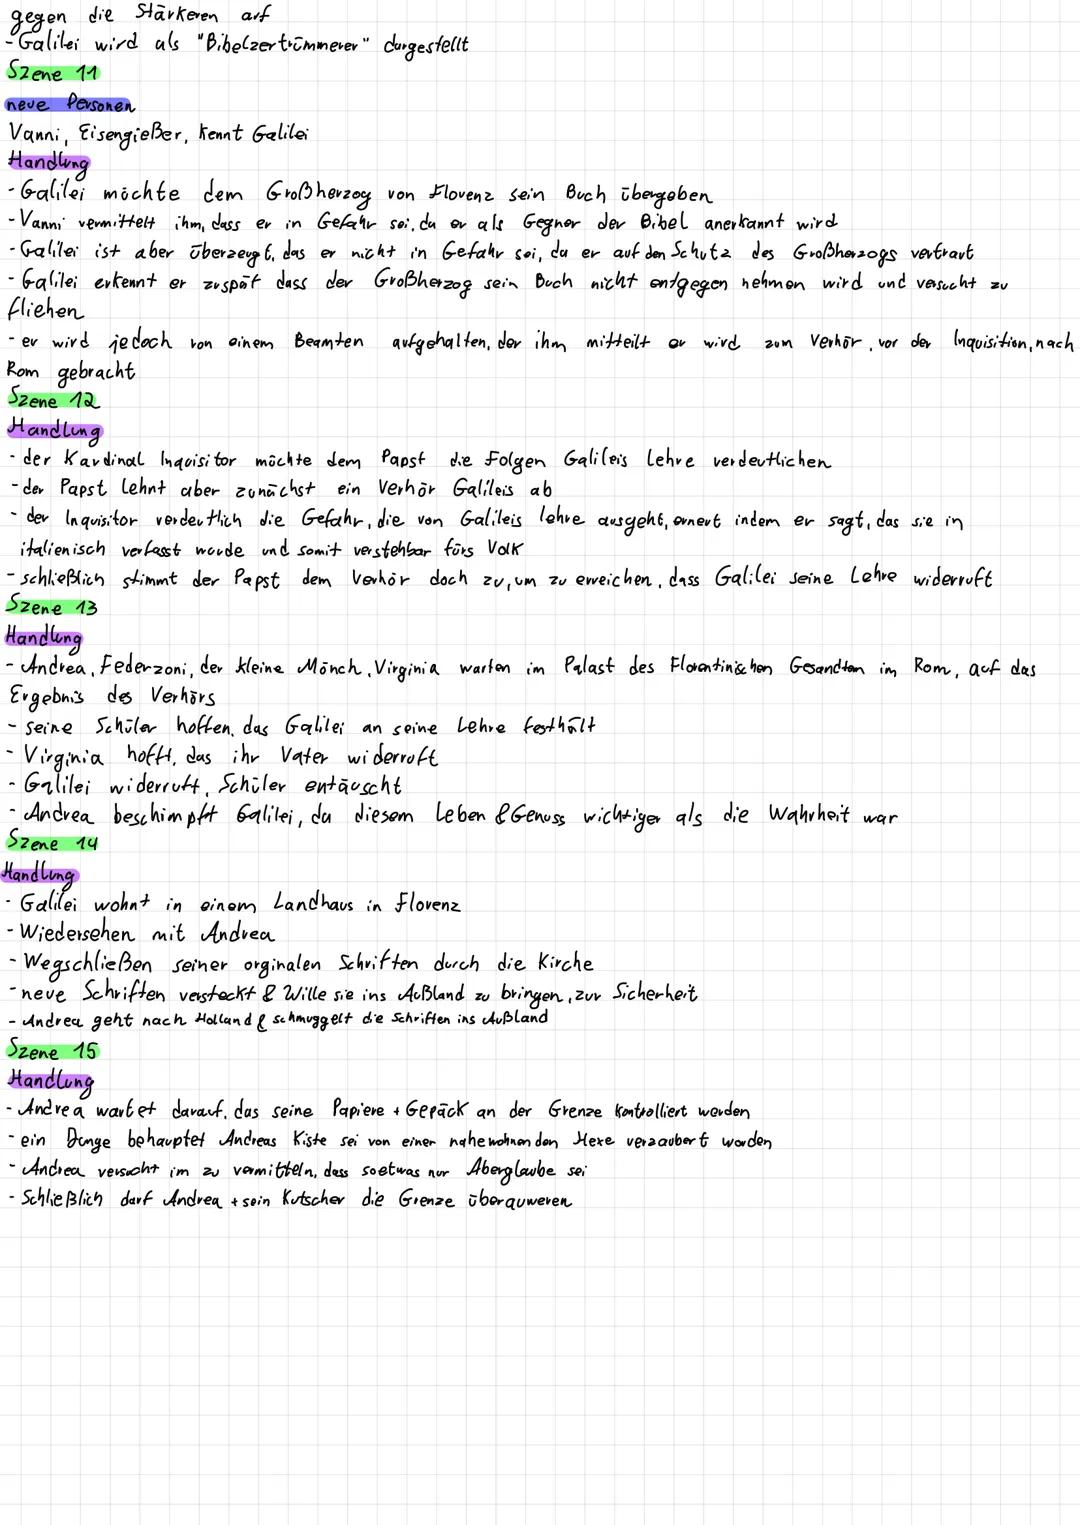 gegen die Stärkeren auf
- Galilei wird als "Bibelzertrümmerer" dargestellt
Szene 11
neue Personen
Vanni, Eisengießer, kennt Galilei
Handlung
- Galilei möchte dem Großherzog von Florenz sein Buch übergeben
- Vanni vermittelt ihm, dass er in Gefahr sei, da er als Gegner der Bibel anerkannt wird
- Galilei ist aber überzeugt, das er nicht in Gefahr sei, da er auf den Schutz des Großherzogs vertraut
- Galilei erkennt er zuspät dass der Großherzog sein Buch nicht entgegen nehmen wird und versucht zu
fliehen
- er wird jedoch von einem Beamten aufgehalten, der ihm mitteilt er wird zum Verhör, vor der Inquisition, nach
Rom gebracht
Szene 12
Handlung
- der Kardinal Inquisitor möchte dem Papst die Folgen Galileis Lehre verdeutlichen
- der Papst lehnt aber zunächst ein Verhör Galileis ab
- der Inquisitor verdeutlich die Gefahr, die von Galileis lehre ausgeht, erneut indem er sagt, das sie in
italienisch verfasst wurde und somit verstehbar fürs Volk
- schließlich stimmt der Papst dem Verhör doch zu, um zu erreichen, dass Galilei seine Lehre widerruft
Szene 13
Handlung
- Andrea, Federzoni, der kleine Mönch, Virginia warten im Palast des Florentinischen Gesandten im Rom, auf das
Ergebnis des Verhörs
- seine Schüler hoffen, das Galilei an seine Lehre festhält
- Virginia hofft, das ihr Vater widerruft
- Galilei widerruft, Schüler entäuscht
- Andrea beschimpft Galilei, da diesem Leben & Genuss wichtiger als die Wahrheit war
Szene 14
Handlung
- Galilei wohnt in einem Landhaus in Florenz
- Wiedersehen mit Andrea
- Wegschließen seiner orginalen Schriften durch die Kirche
- neue Schriften versteckt & Wille sie ins Außland zu bringen, zur Sicherheit
- Andrea geht nach Holland & schmuggelt die Schriften ins Außland
Szene 15
Handlung
- Andrea wartet darauf, das seine Papiere + Gepäck an der Grenze kontrolliert werden
- ein Junge behauptet Andreas Kiste sei von einer nahewohnenden Hexe verzaubert worden
- Andrea versucht im zu vermitteln, dass soetwas nur Aberglaube sei
- Schließlich darf Andrea + sein Kutscher die Grenze überquweren